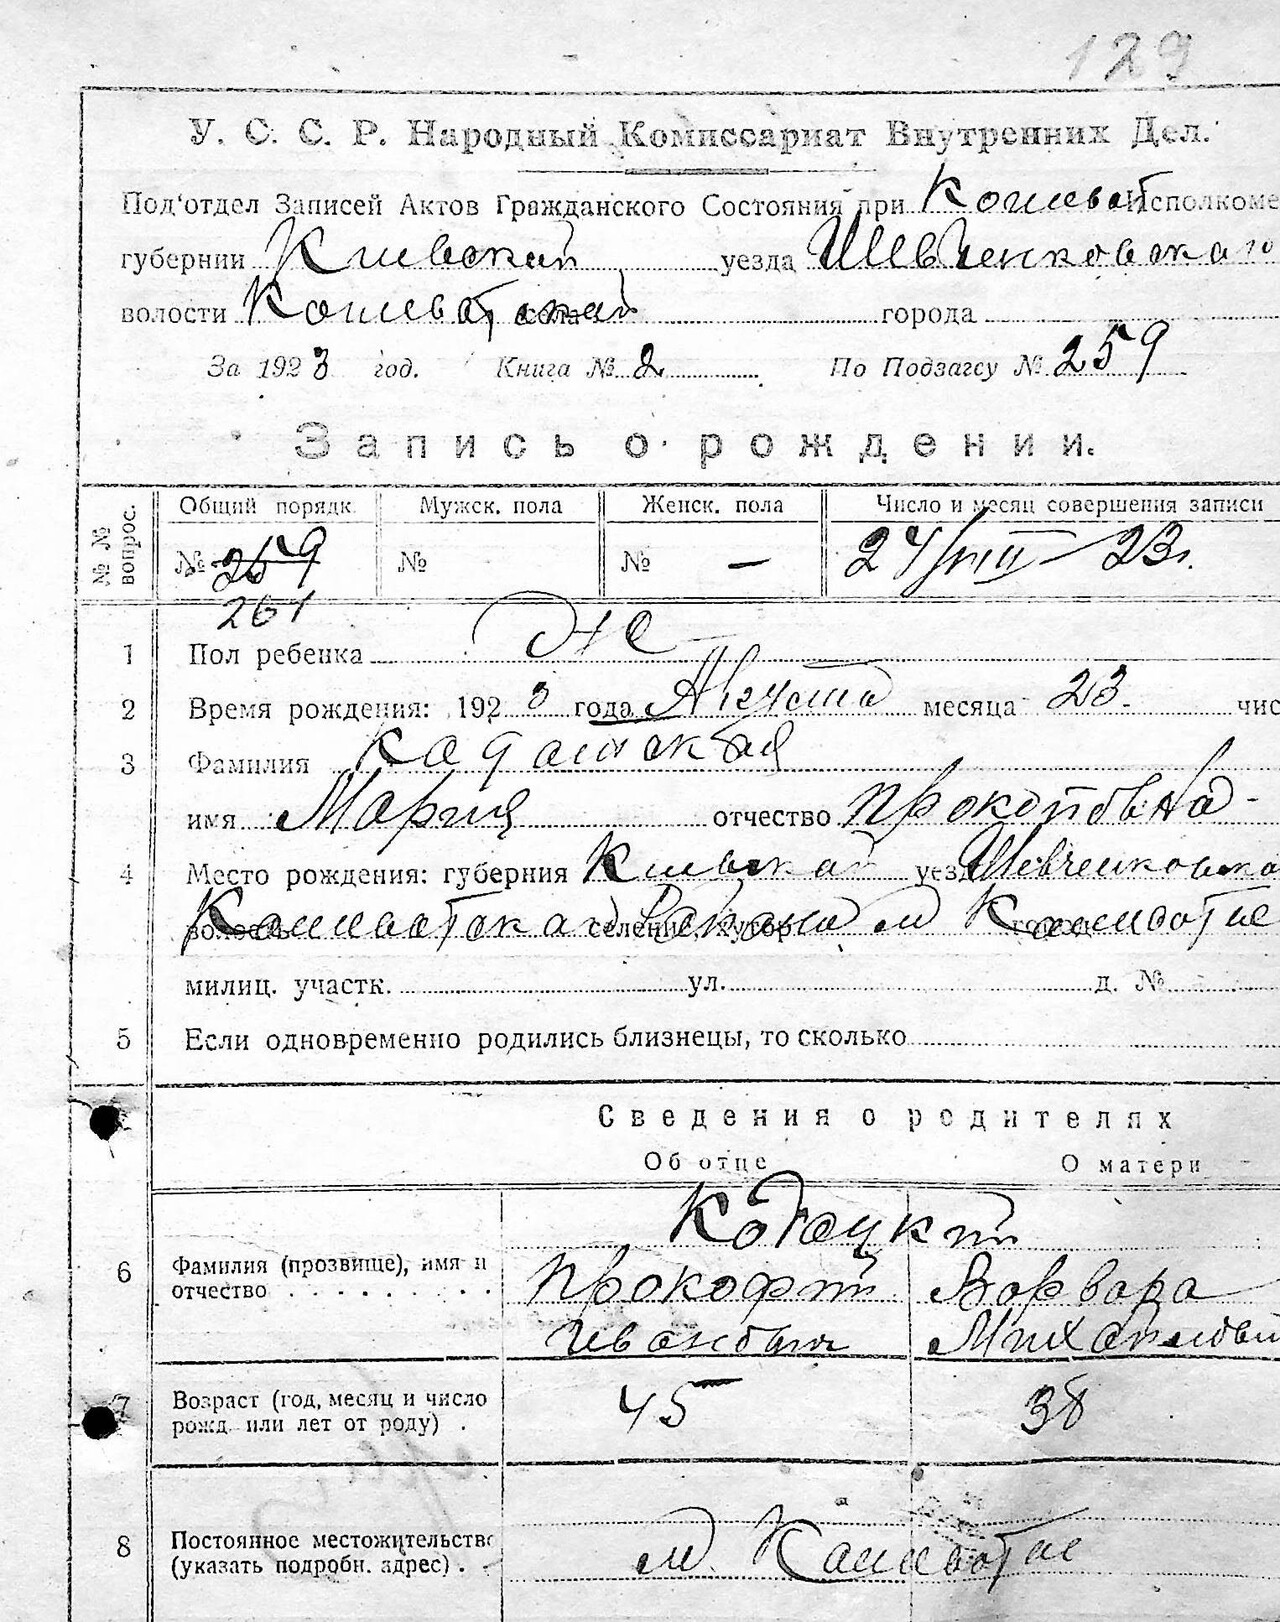 129
У. С. С. Р. Народный Комиссариат Внутренних Дел.
Под'отдел Записей Актов Гражданского Состояния при Кошеват Исполкоме
губернии Киевской уезда Шевченковского
волости Кошеватской села города
За 1923 год. Книга № 2 По Подзагсу № 259
Запись о рождении.
№ № вопрос. Общий порядк. Мужск. пола Женск. пола Число и месяц совершения записи
№ 259 № № — 24/VIII 23г.
261
1 Пол ребенка Же
2 Время рождения: 1923 года Августа месяца 23 чис
3 Фамилия
имя Мария отчество Прокоповна
4 Место рождения: губерния Киевской уезд Шевченковско
волость Кошеватской селение, хутор м Кошеватое
милиц. участк. ул. д. №
5 Если одновременно родились близнецы, то сколько
Сведения о родителях
Об отце О матери
Кодацкий
6 Фамилия (прозвище), имя и Прокофий Варвара
отчество Иванович Михайлов
7 Возраст (год, месяц и число 45 38
рожд. или лет от роду)
8 Постоянное местожительство м. Кошеватое
(указать подробн. адрес)